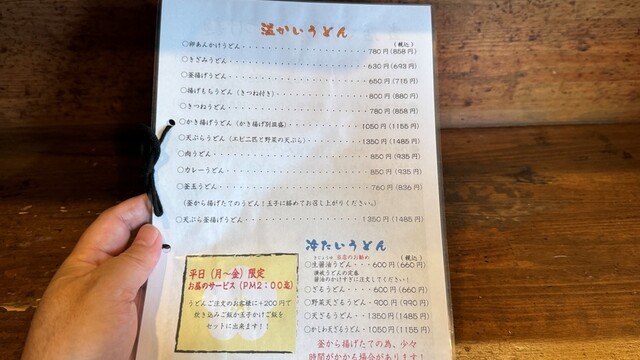 温かいうどん
(税込)
○卵あんかけうどん・・・780円(858円)
○きざみうどん・・・630円(693円)
○釜揚げうどん・・・650円(715円)
○揚げもちうどん(きつね付き)・・・800円(880円)
○きつねうどん・・・780円(858円)
○かき揚げうどん(かき揚げ別皿盛)・・・1050円(1155円)
○天ぷらうどん(エビ二匹と野菜の天ぷら)・・・1350円(1485円)
○肉うどん・・・850円(935円)
○カレーうどん・・・850円(935円)
○釜玉うどん・・・760円(836円)
(釜から揚げたてのうどん!玉子に絡めてお召し上がりください。)
○天ぷら釜揚げうどん・・・1350円(1485円)
平日(月~金)限定
お昼のサービス(PM2:00迄)
うどんご注文のお客様に+200円で
炊き込みご飯か玉子かけご飯を
セットに出来ます!!
冷たいうどん
当店のお勧め
(税込)
○生醤油うどん・・・600円(660円)
讃岐うどんの定番
醤油のかけすぎに注意してください!
○ざるうどん・・・600円(660円)
○野菜天ざるうどん・900円(990円)
○天ざるうどん・・・1350円(1485円)
○かしわ天ざるうどん・・・1050円(1155円)
釜から揚げたての為、少々
時間がかかる場合があります!